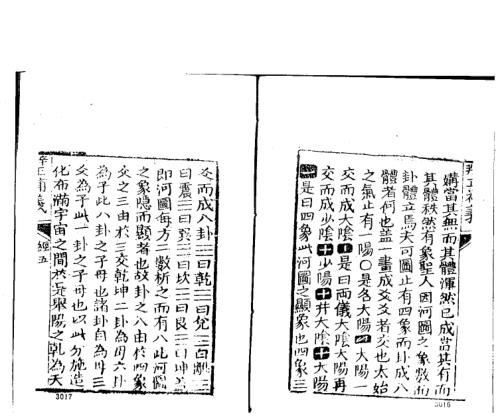 媾當其無而其體渾然已成當其有而
其體秩然有象聖人因河圖之象數而
卦體立焉夫河圖止有四象而卦成八
體者何也蓋一畫成爻爻者交也太始
之氣止有一陽〇是名大陽 大陽一
交而成大陰 是曰兩儀大陰大陽再
交而成少陰 少陽 并大陰 大陽
是曰四象此河圖之顯象也四象三
爻而成八卦☰曰乾☱曰兌☲曰離☳
曰震☴曰巽☵曰坎☶曰艮☷曰坤
即河圖每方二數析之而有八此河圖
之象隱而顯者也故卦之八由於四象
爻之三由於三交乾坤二卦為母六卦
為子此八卦之子母也諸卦自為母三
爻為子此一卦之子母也以此分施造
化布滿宇宙之間於是取陽之乾為天
經五
3017
3016